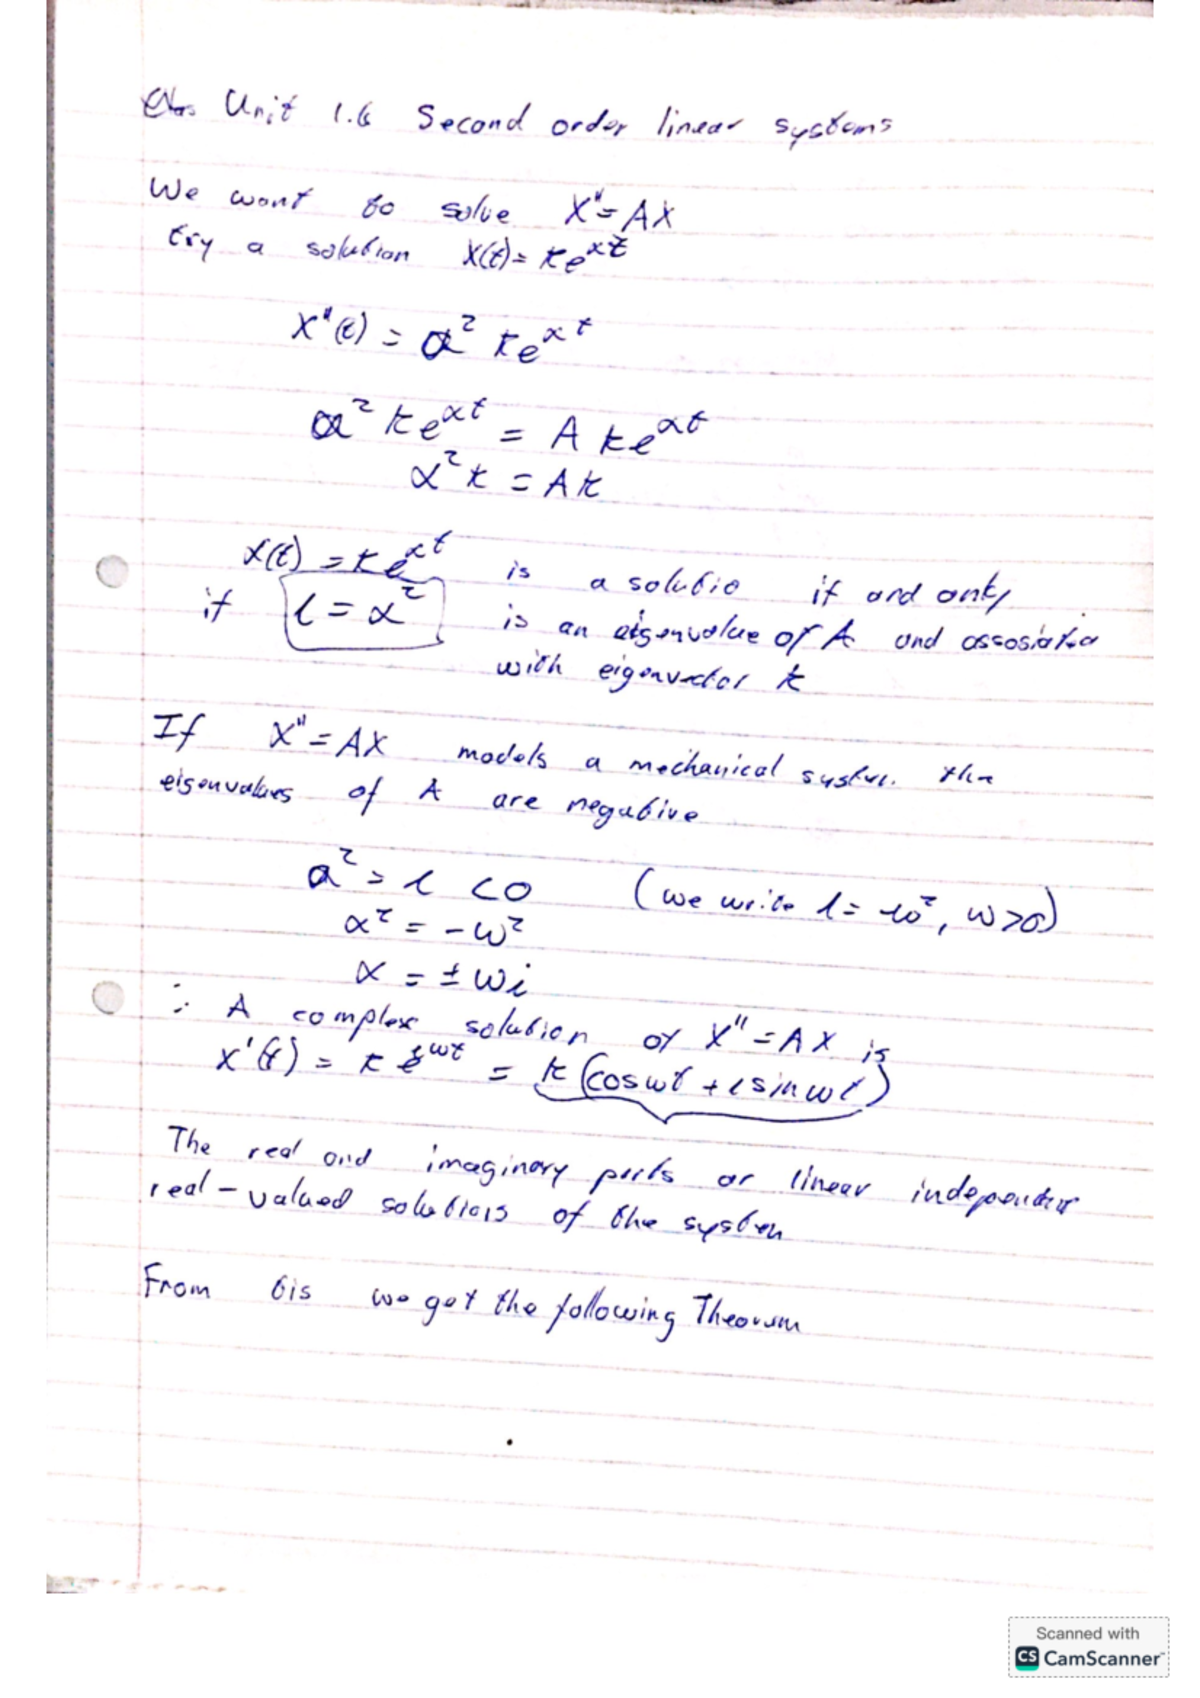 Unit 1.6 Second order linear systems
We want to solve X''= AX
try a solution X(t)= ke^αt
X''(t) = α² ke^αt
α² ke^αt = A ke^αt
α²k = Ak
X(t) = ke^αt is a solutio if and only
if l = α² is an eigenvalue of A and assosiatea
with eigenvector k
If X''= AX models a mechanical system. the
eigenvalues of A are negative
α² = l <0 (we write l= -ω², ω>0)
α² = -ω²
α = ± ωi
∴ A complex solution of X'' = AX is
X'(t) = k e^iωt = k (cosωt + isinωt)
The real and imaginary parts ar linear independent
real-valued solutions of the system
From tis we get the following Theorum
Scanned with
CS CamScanner